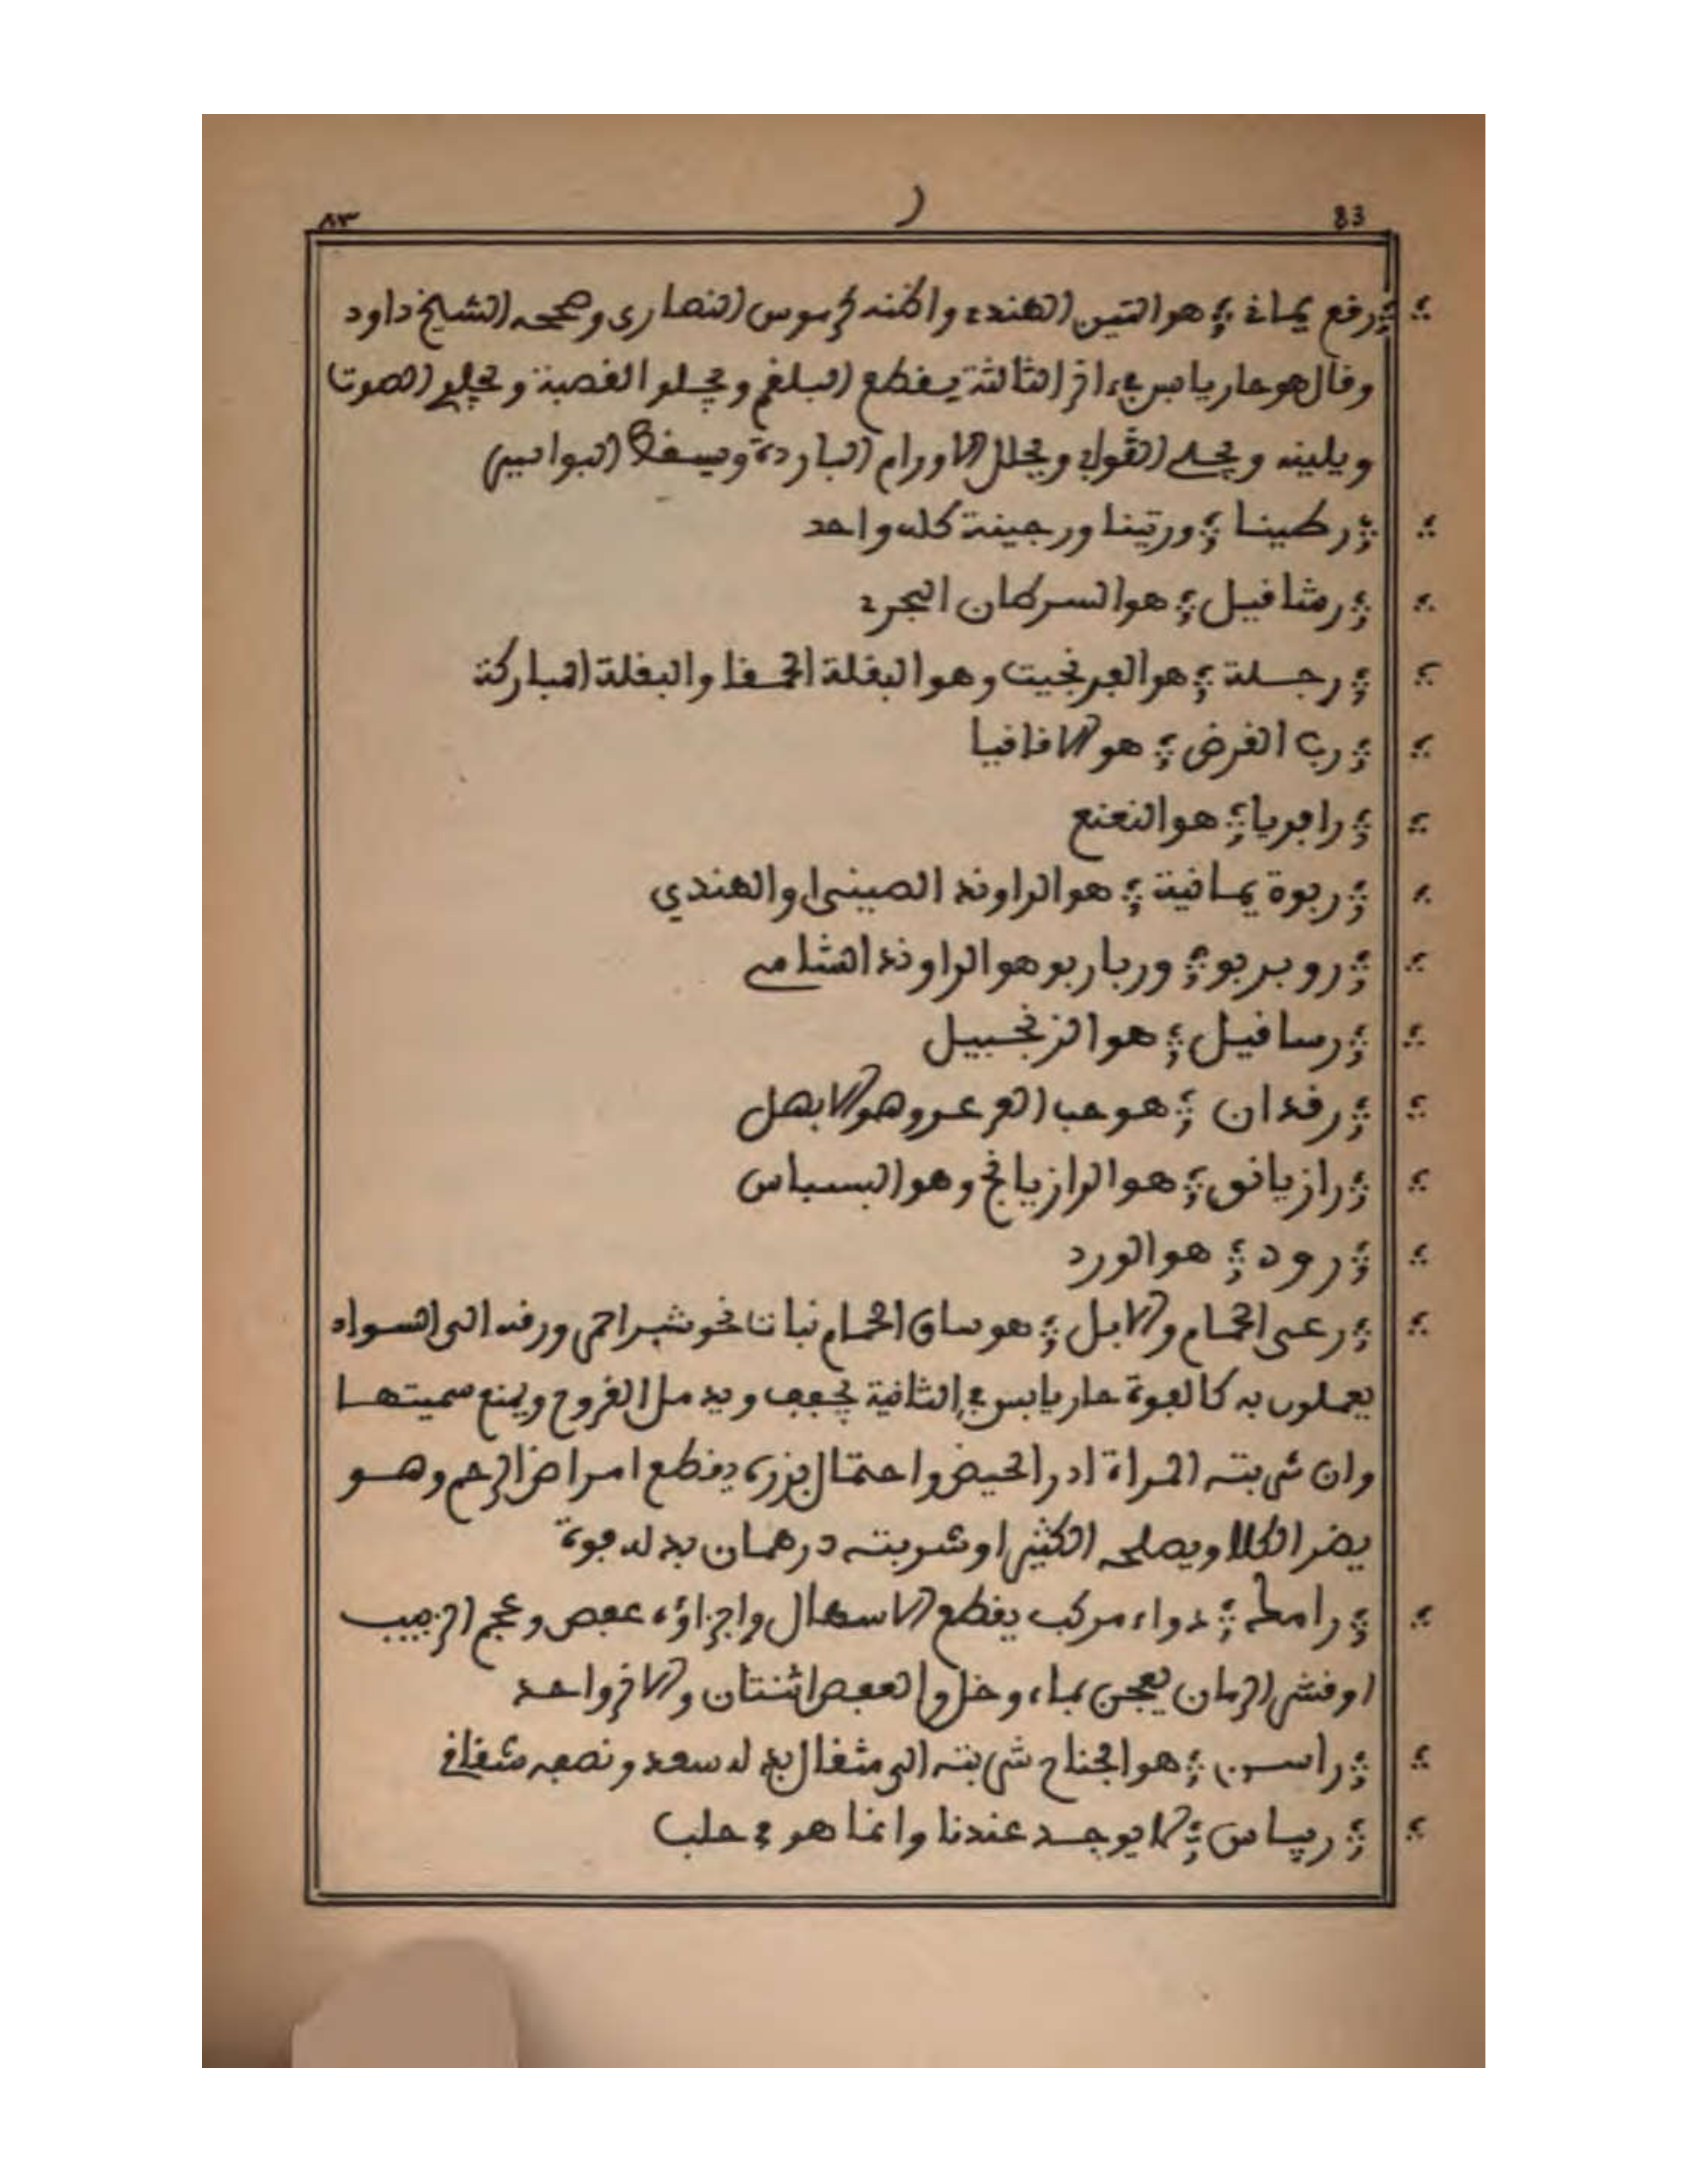 ٨٣ ر 83
رقع يماني هو التين الهندي واظنه كرموس النصارى وصححه الشيخ داود
وقال هو حار يابس في اخر الثالثة يقطع البلغم ويجلو القصبة ويجلي الصوت
ويلينه ويحلل الاورام الباردة ويسقط البواسير
رطينا ورتينا ورجينة كله واحد
رشافيل هو السرطان البحري
رجلة هو الفرفجيت وهو البقلة الحمقا والبقلة المباركة
رب القرض هو الاقاقيا
رافريا هو النعنع
ربوة يمانية هو الراوند الصيني والهندي
روبربو وربابو هو الراوند الشامي
رسافيل هو الزنجبيل
رقدان هو حب العرعر وهو الابهل
رازيانق هو الرازيانج وهو البسباس
رود هو الورد
رعي الحمام والابل هو ساق الحمام نبات نحو شبر احمر ورقه الى السواد
يعملون به كالفوة حار يابس في الثانية يجفف ويدمل القروح ويمنع سميتها
وان شربته المراة ادر الحيض واحتمال بزره يقطع امراض الرحم وهو
يضر الكلا ويصلحه الكثيرا وشربته درهمان بدله فوة
رامط دواء مركب يقطع الاسهال واجزاؤه عفص وعجم الزبيب
او قشر الرمان يعجن بماء وخل والعفص اثنتان والاخر واحد
راسن هو الجناح شربته الى مثقال بدله سعد ونصفه شقاقل
ريباس لا يوجد عندنا وانما هو في حلب